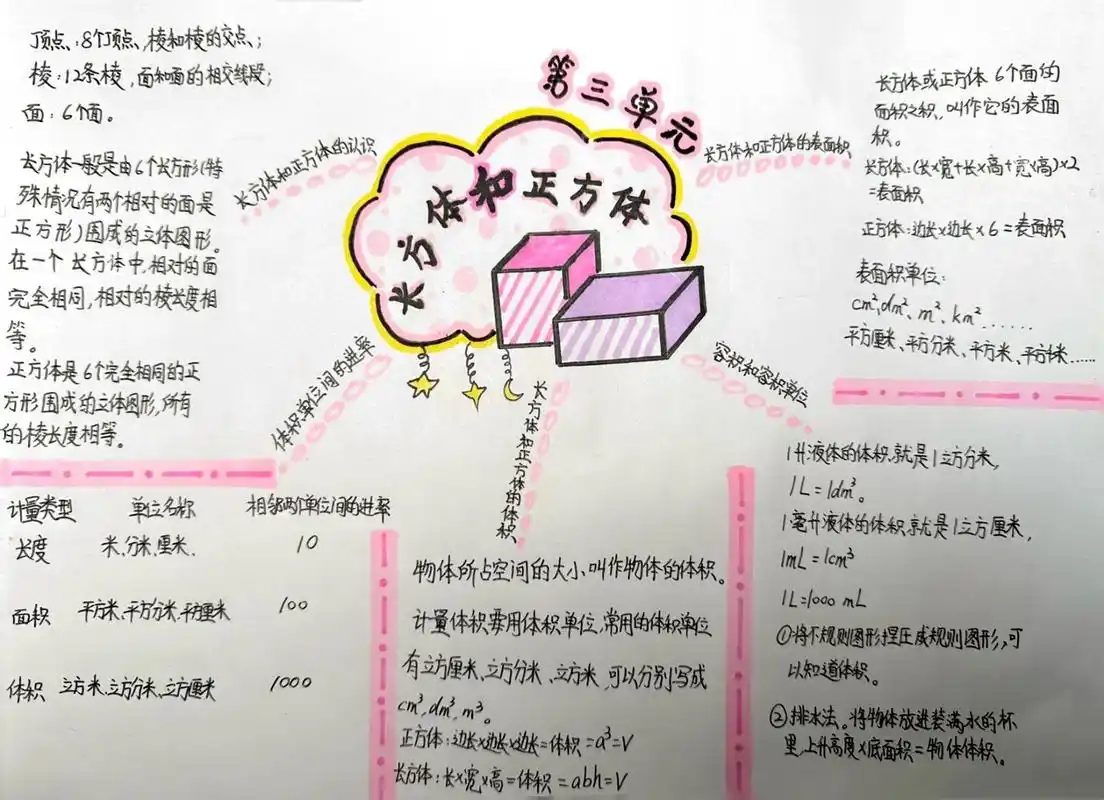 第三单元
长方体和正方体
长方体和正方体的认识
顶点:8个顶点,棱和棱的交点;
棱:12条棱,面和面的相交线段;
面:6个面。
长方体一般是由6个长方形(特
殊情况有两个相对的面是
正方形)围成的立体图形。
在一个长方体中,相对的面
完全相同,相对的棱长度相
等。
正方体是6个完全相同的正
方形围成的立体图形,所有
的棱长度相等。
体积单位间的进率
计量类型 单位名称 相邻两个单位间的进率
长度 米、分米、厘米、 10
面积 平方米、平方分米、平方厘米 100
体积 立方米、立方分米、立方厘米 1000
长方体和正方体的体积
物体所占空间的大小叫作物体的体积。
计量体积要用体积单位,常用的体积单位
有立方厘米、立方分米、立方米,可以分别写成
cm³,dm³,m³。
正方体:边长×边长×边长=体积=a³=V
长方体:长×宽×高=体积=abh=V
长方体和正方体的表面积
长方体或正方体6个面的
面积之积,叫作它的表面
积。
长方体:(长×宽+长×高+宽×高)×2
=表面积
正方体:边长×边长×6=表面积
表面积单位:
cm²、dm²、m²、km²......
平方厘米、平方分米、平方米、平方千米......
容积和容积单位
1升液体的体积就是1立方分米,
1L=1dm³。
1毫升液体的体积就是1立方厘米,
1mL=1cm³
1L=1000 mL
①将不规则图形捏压成规则图形,可
以知道体积。
②排水法。将物体放进装满水的杯
里,上升高度×底面积=物体体积。